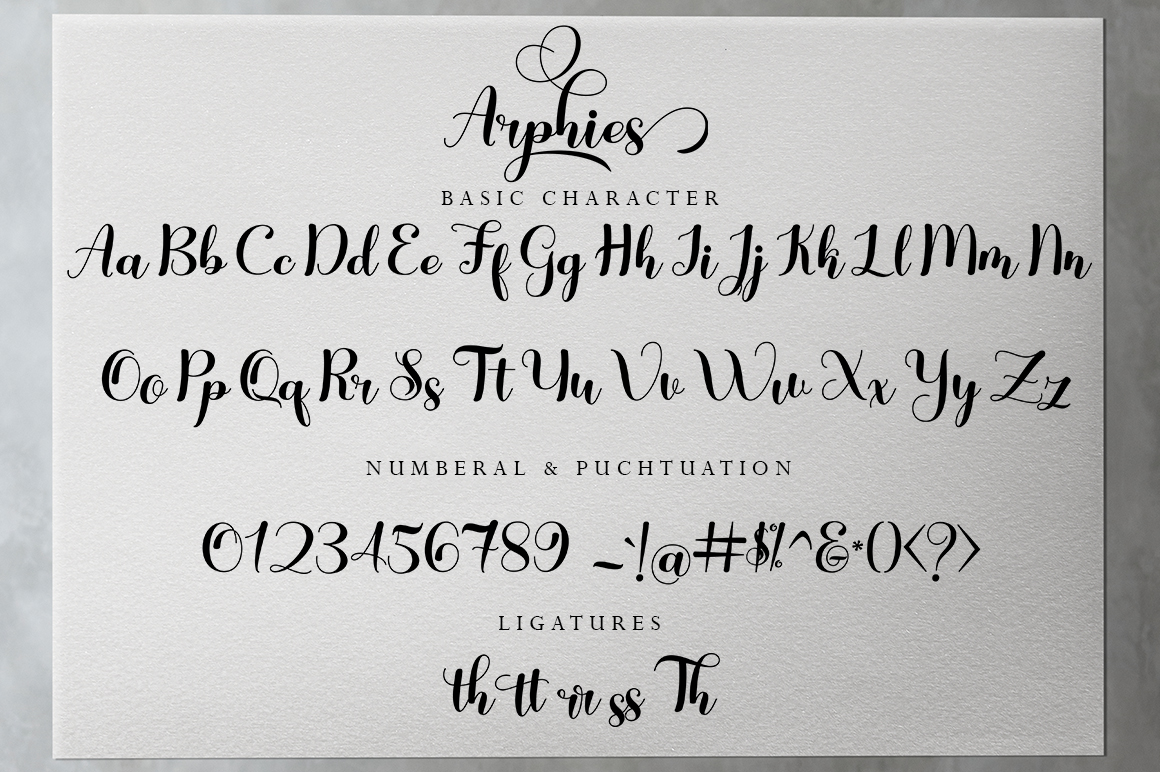 Arphies
BASIC CHARACTER
Aa Bb Cc Dd Ee Ff Gg Hh Ii Jj Kk Ll Mm Nn
Oo Pp Qq Rr Ss Tt Uu Vv Ww Xx Yy Zz
NUMBERAL & PUCHTUATION
0123456789 ~`!@#$%^&*()<?>
LIGATURES
th tt rr ss Th